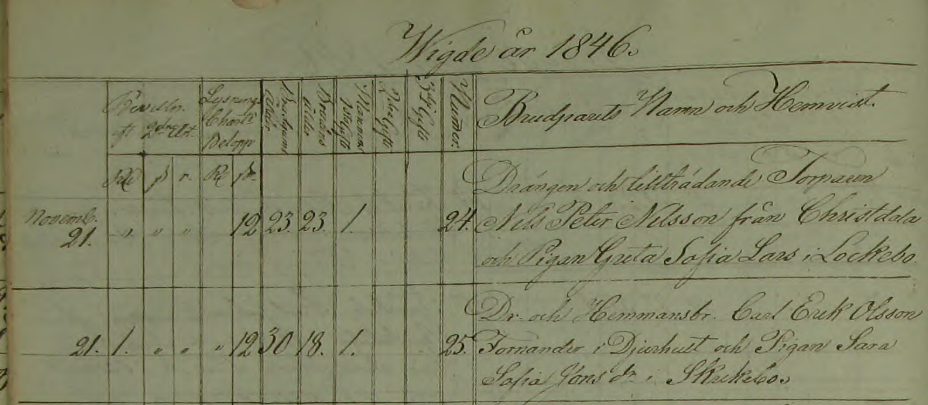 Wigde år 1846.
Lysnings
Charte
Belopp
Brudgummens ålder
Brudens ålder
Mannens 1sta Gifte
2dra Gifte
3dje Gifte
Numer.
Brudparets Namn och Hemvist.
Rd s r. Rd s.
Drängen och tillträdande Torparen
Novemb.
21. " " " 12 23. 23. 1. 24. Nils Peter Nilsson från Christdala
och Pigan Greta Sofia Lars i Lockebo
Dr. och Hemmansbr. Carl Erik Olsson
21. 1. " " " 12 30 18. 1. 25. Fornander i Djurhult och Pigan Sara
Sofia Jons dr i Skrikebo.